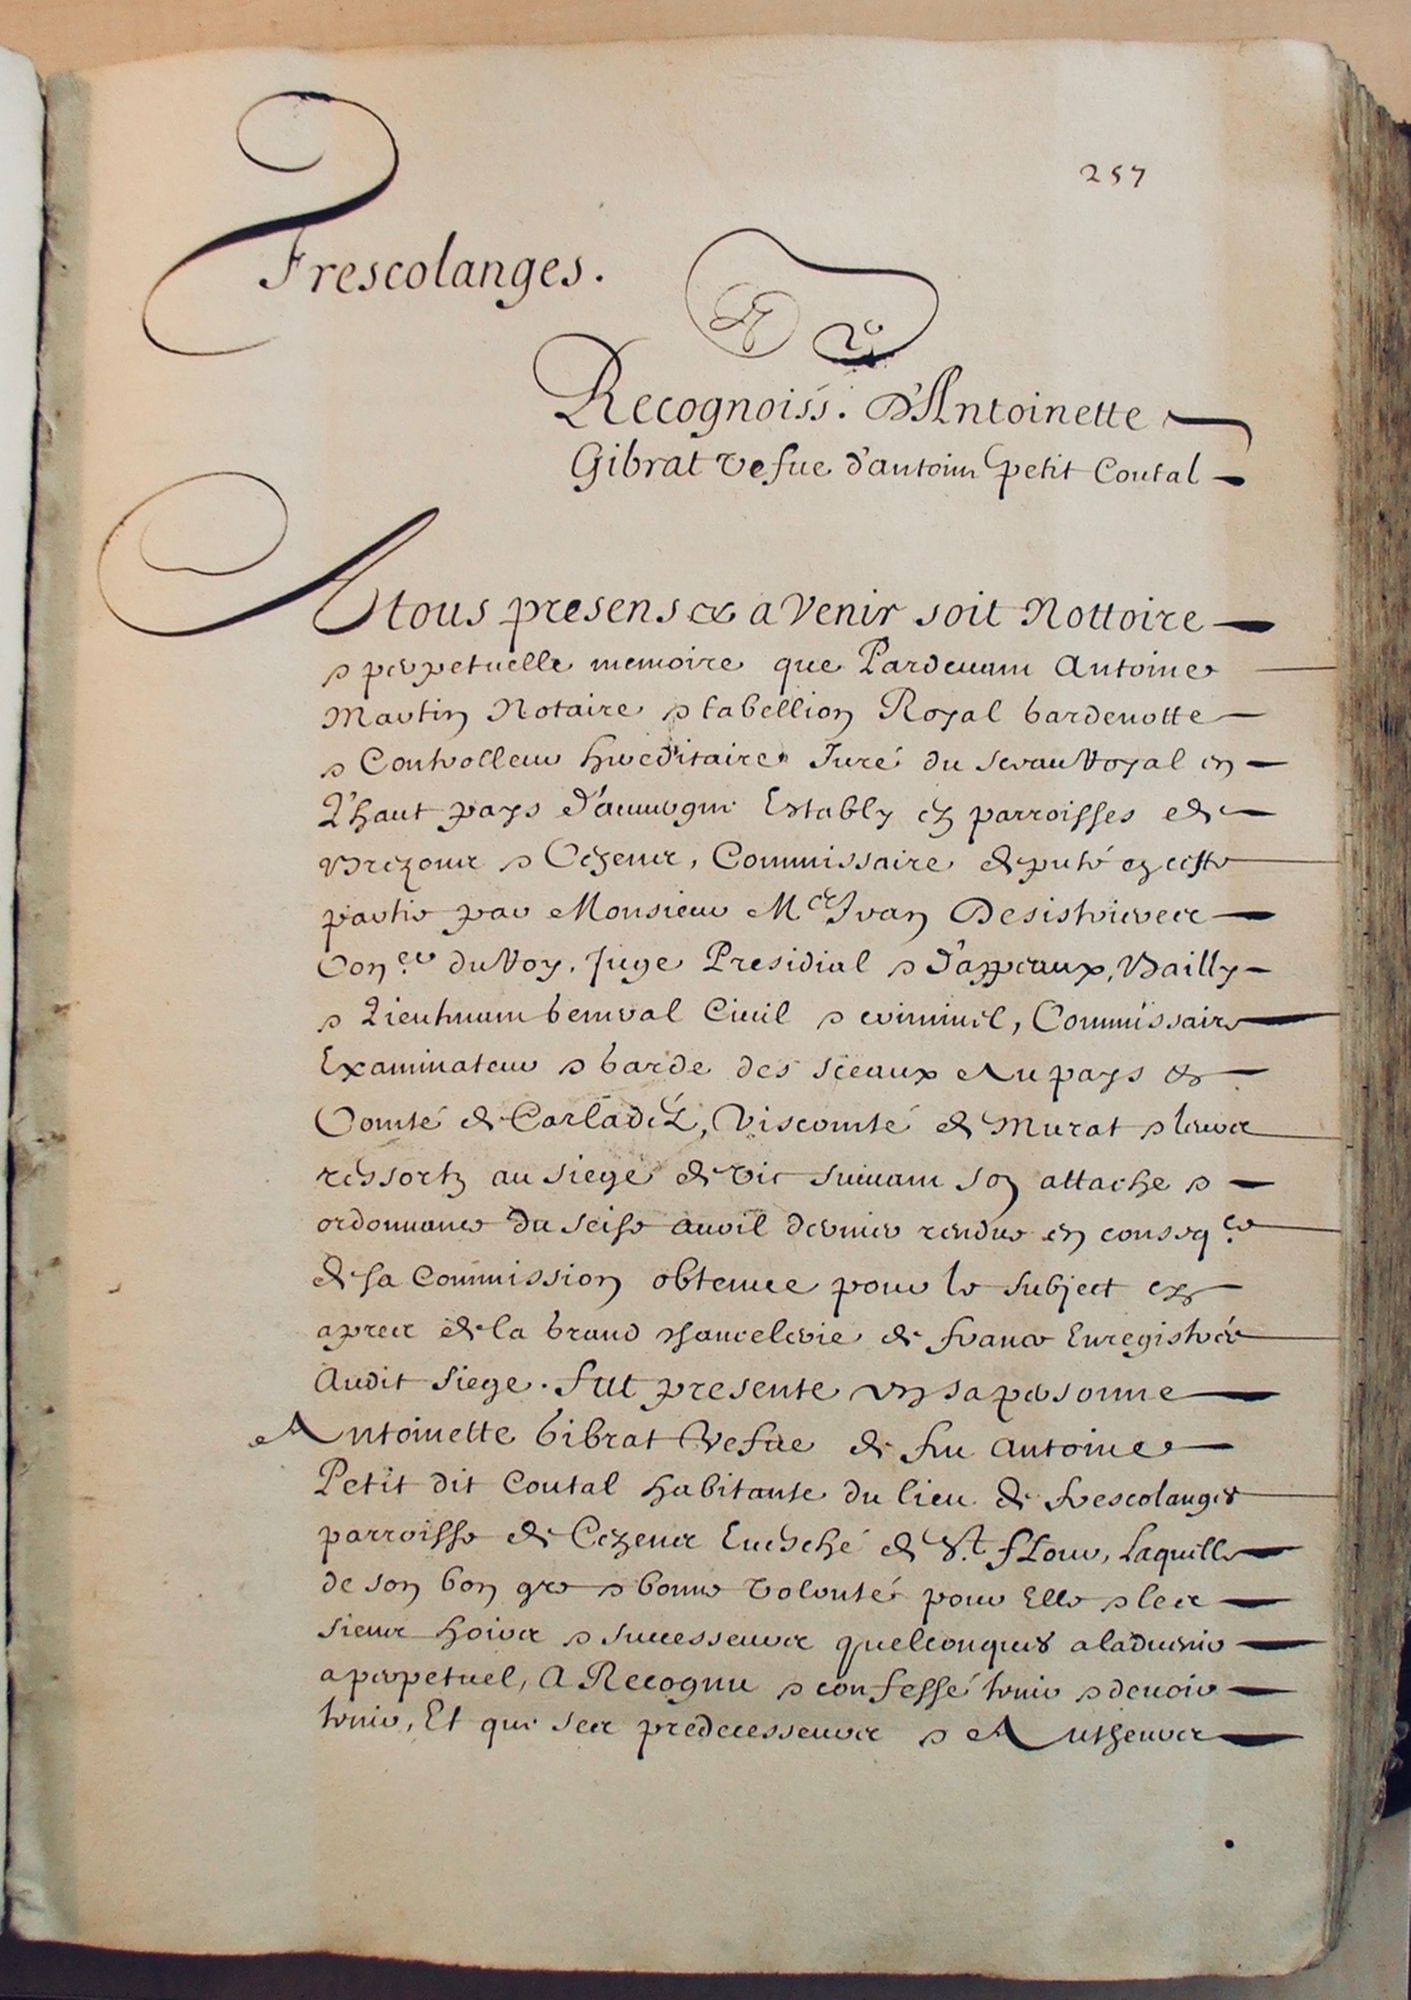 257
Frescolanges.
Recognoiss. D'Antoinette
Gibrat vefue d'antoine petit Coutal
A tous presens & a Venir soit Nottoire
& perpetuelle memoire que Pardeuant Antoine
Martin Notaire & tabellion Royal Gardenotte
& Controlleur hereditaire Juré du sceau Royal en
L'haut pays d'auuergne Estably ez parroisses de
Brezons & Cezens, Commissaire deputé en ceste
partie par Monsieur Me Jean Desistrieres
Con.er du Roy, Juge Presidial & d'appeaux, Bailly
& Lieutenant General Ciuil & criminel, Commissaire
Examinateur & Garde des sceaux Au pays &
Comté de Carladéz, Viscomté de Murat & leurs
ressortz au siege de vic suiuant son attache &
ordonnance du seise auril dernier rendue en conseq.ce
de sa Commission obtenue pour le subject cy
apres de la Grand chancelerie de france Enregistrée
Audit siege. fut presente en sa personne
Antoinette Gibrat Vefue de feu Antoine
Petit dit Coutal habitante du lieu de frescolanges
parroisse de Cezens Euesché de St. flour, Laquelle
de son bon gre & bonne volonté pour Elle & les
siens hoirs & successeurs quelconques aladuenir
a perpetuel, A Recognu & confessé tenir & deuoir
tenir, Et que ses predecesseurs & Autheurs